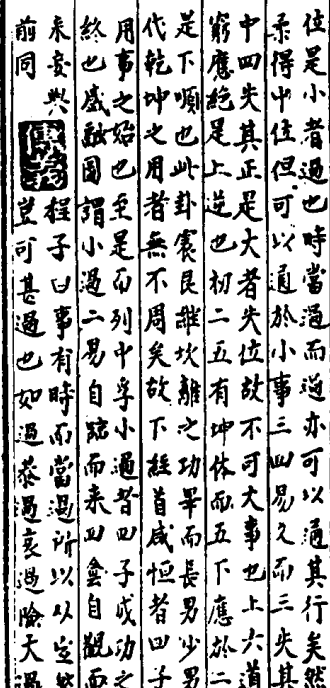 位是小者過也時當過而過亦可以通其行矣然
柔得中位但可以通於小事三四易久而三失其
中四失其正是大者失位故不可大事也上六道
窮應絕是上逆也初二五有坤体而五下應於二
是下順也此卦震艮雖坎離之功畢而長男少男
代乾坤之用者無不周矣故下経首咸恒者四子
用事之始也至是而列中孚小過者四子成功之
終也盛融圖謂小過二易自臨而来四畫自觀而
来與
前同
傳義
程子曰事有時而當過所以从宜然
豈可甚過也如過恭過哀過儉大過